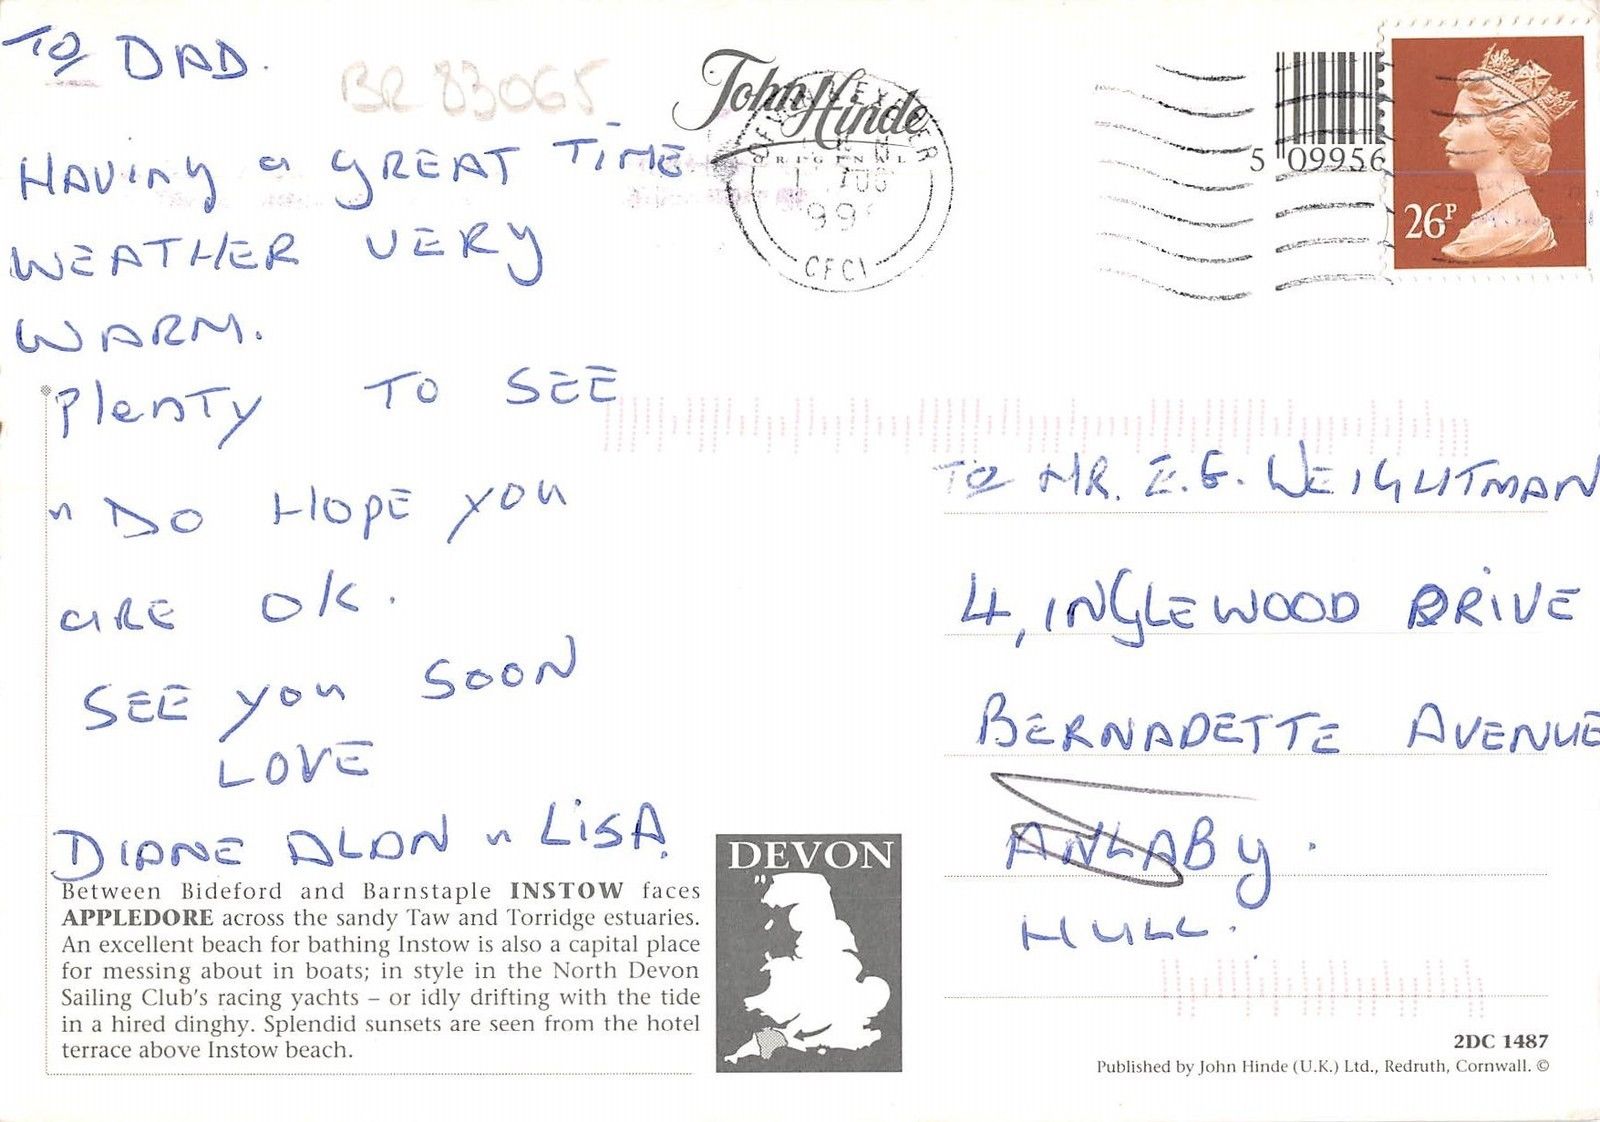 TO DAD.
BR 83065
HAVING a GREAT TIME
WEATHER VERY
WARM.
PlenTy TO SEE
n DO HOPE you
are OK.
SEE you SOON
LOVE
DIANE ALAN n LiSA.
Between Bideford and Barnstaple INSTOW faces
APPLEDORE across the sandy Taw and Torridge estuaries.
An excellent beach for bathing Instow is also a capital place
for messing about in boats; in style in the North Devon
Sailing Club's racing yachts – or idly drifting with the tide
in a hired dinghy. Splendid sunsets are seen from the hotel
terrace above Instow beach.
DEVON
John Hinde
ORIGINAL
EXETER
AUG
CFC1
5 09956
26P
TO MR. E.G. WEIGHTMAN
4, INGLEWOOD DRIVE
BERNADETTE AVENUE
ANLABY.
HULL.
2DC 1487
Published by John Hinde (U.K.) Ltd., Redruth, Cornwall. ©